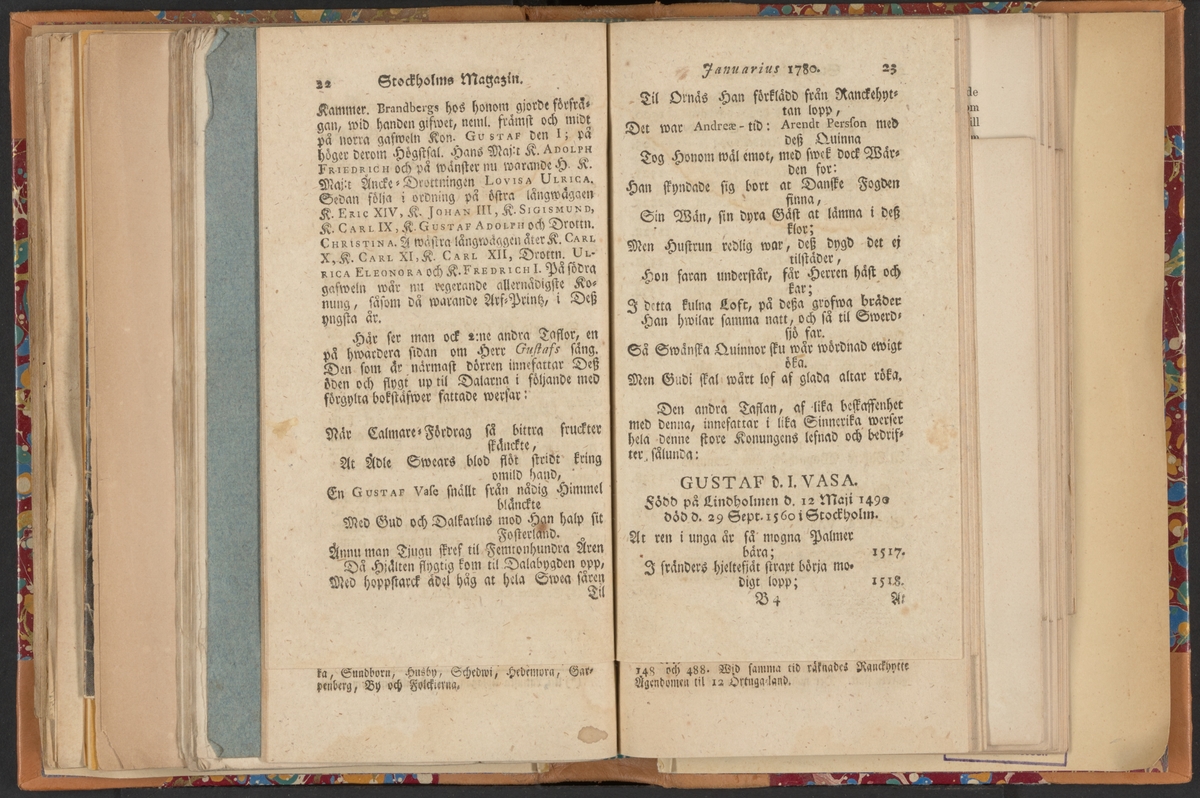 22 Stockholms Magazin.
Kammer. Brandbergs hos honom gjorde förfrå-
gan, wid handen gifwet, neml. främst och midt
på norra gafweln Kon. GUSTAF den I; på
höger derom Högstsal. Hans Maj:t K. ADOLPH
FRIEDRICH och på wänster nu warande H. K.
Maj:t Äncke-Drottningen LOVISA ULRICA.
Sedan följa i ordning på östra långwäggen
K. ERIC XIV, K. JOHAN III, K. SIGISMUND,
K. CARL IX, K. GUSTAF ADOLPH och Drottn.
CHRISTINA. Å wästra långwäggen åter K. CARL
X, K. CARL XI, K. CARL XII, Drottn. UL-
RICA ELEONORA och K. FREDRICH I. På södra
gafweln wår nu regerande allernådigste Ko-
nung, såsom då warande Arf-Printz, i Deß
yngsta år.
Här ser man ock 2:ne andra Taflor, en
på hwardera sidan om Herr Gustafs säng.
Den som är närmast dörren innefattar Deß
öden och flygt up til Dalarna i följande med
förgylta bokstäfwer fattade werſar:
När Calmare-Fördrag så bittra fruckter
skänckte,
At Ädle Swears blod flöt stridt kring
omild hand,
En GUSTAF Vase snällt från nådig Himmel
blänckte
Med Gud och Dalkarlns mod Han halp sit
Fosterland.
Ännu man Tjugu skref til Femtonhundra Åren
Då Hjälten flygtig kom til Dalabygden opp,
Med hoppstarck ädel håg at hela Swea såren
Til
ka, Sundborn, Husby, Schedwi, Hedemora, Gar-
penberg, By och Folckierna.
Januarius 1780. 23
Til Ornäs Han förklädd från Ranckehyt-
tan lopp,
Det war Andreæ-tid: Arendt Persson med
deß Quinna
Tog Honom wäl emot, med swek dock Wär-
den for:
Han skyndade sig bort at Danske Fogden
finna,
Sin Wän, sin dyra Gäst at lämna i deß
klor;
Men Hustrun redlig war, deß dygd det ej
tilstäder,
Hon faran understår, får Herren häst och
kar;
I detta kulna Loft, på deßa grofwa bräder
Han hwilar samma natt, och så til Swerd-
sjö far.
Så Swänska Quinnor sku wår wördnad ewigt
öka.
Men Gudi skal wårt lof af glada altar röka.
Den andra Taflan, af lika beskaffenhet
med denna, innefattar i lika Sinnerika werser
hela denne store Konungens lefnad och bedrif-
ter, sålunda:
GUSTAF d. I. VASA.
Född på Lindholmen d. 12 Maji 1490
död d. 29 Sept. 1560 i Stockholm.
At ren i unga år så mogna Palmer
bära; 1517.
I fränders hjeltefjät straxt börja mo-
digt lopp; 1518.
B 4 At
148 och 488. Wid samma tid räknades Ranckhytte
Ägendomen til 12 Örtuga land.